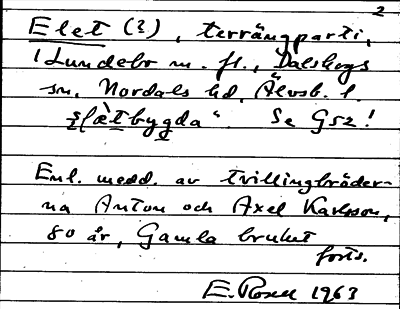 2
Elet (?), terrängparti,
i Lundebo m. fl., Dalskogs
sn, Nordals hd, Älvsb. l.
"slætbygda". Se G52!
Enl. medd. av tvillingbröder-
na Anton och Axel Karlsson,
80 år, Gamla bruket
forts.
E. Rosell 1963